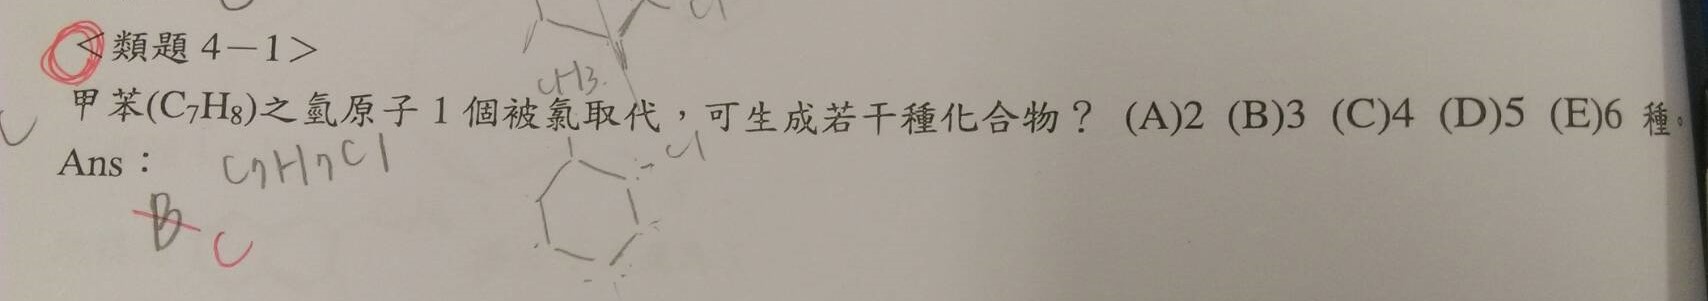 Cl
<類題 4－1>
CH3
甲苯(C7H8)之氫原子 1 個被氯取代，可生成若干種化合物？ (A)2 (B)3 (C)4 (D)5 (E)6 種。
Ans：
C7H7Cl
Cl
B C